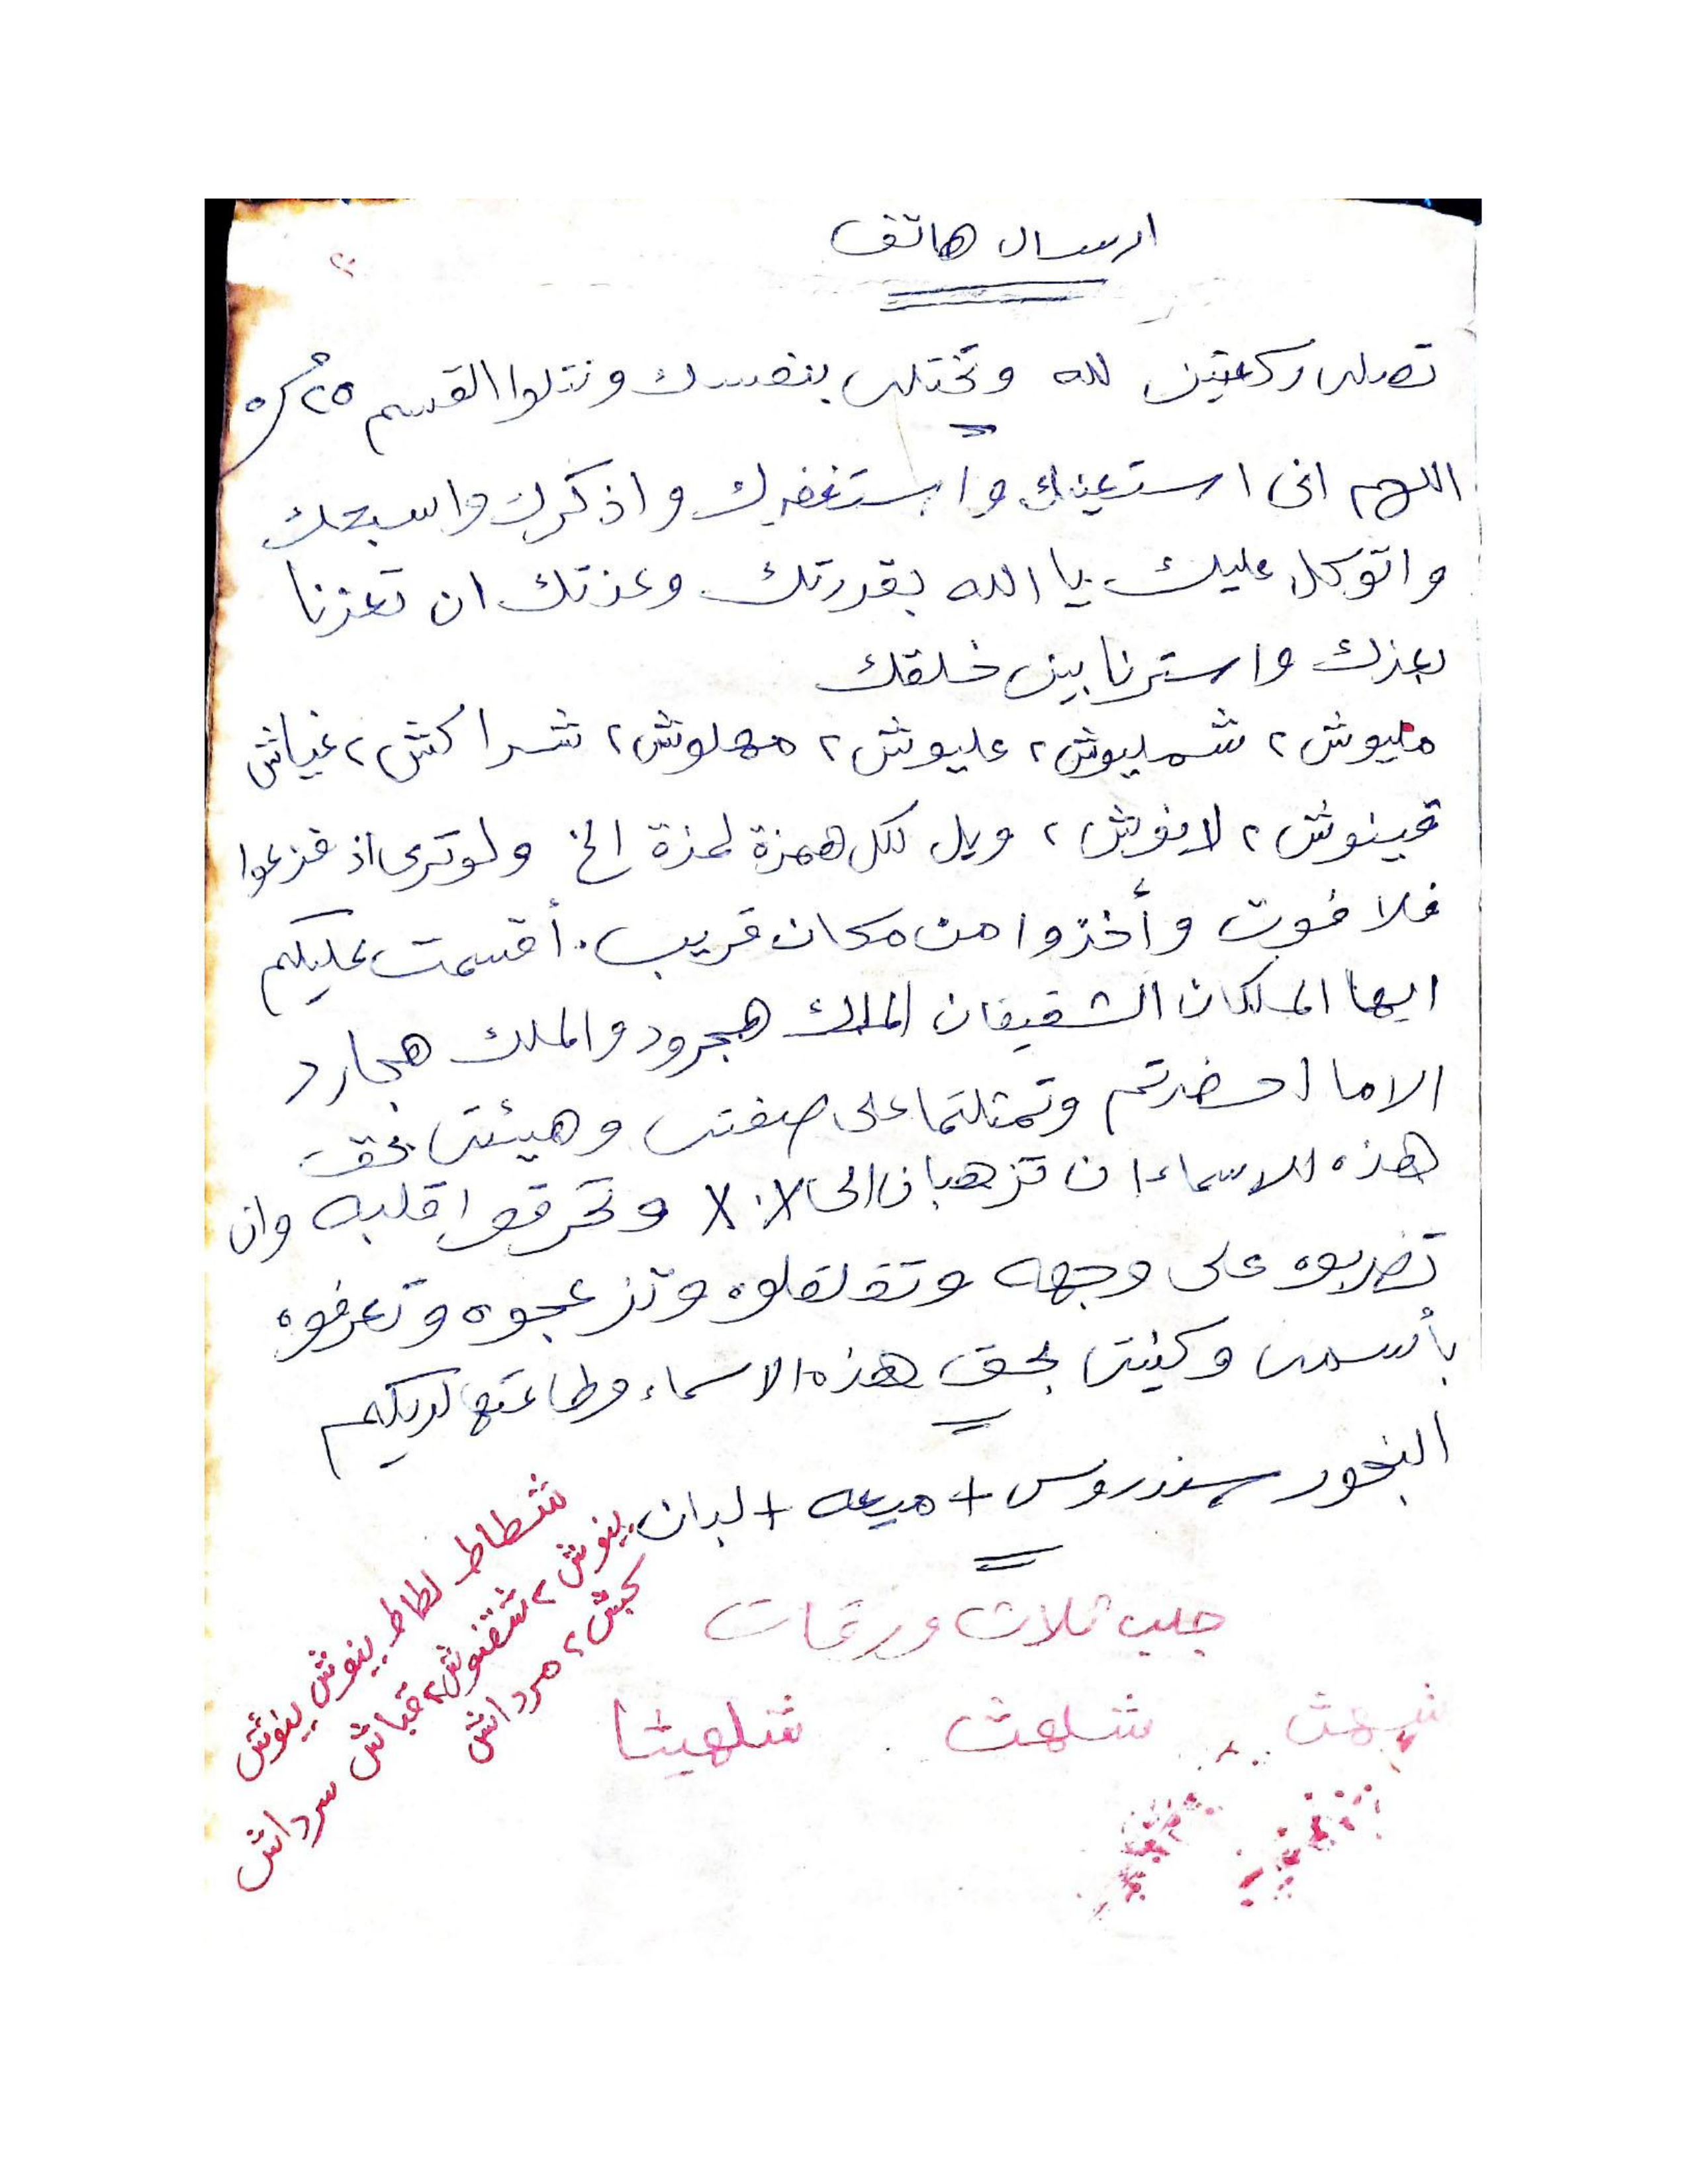 ارسال هاتف
تصلى ركعتين لله وتختلى بنفسك وتتلوا القسم
اللهم انى استعينك واستغفرك واذكرك واسبحك
واتوكل عليك يا الله بقدرتك وعزتك ان تعزنا
بعزك واسترنا بين خلقك
مليوش ٢ شمليوش ٢ عليوش ٢ مهلوش ٢ شراكش ٢ غياش
قينوش ٢ لانوش ٢ ويل لكل همزة لمزة الخ ولوترى اذ فزعوا
فلا فوت وأخذوا من مكان قريب . أقسمت عليكم
ايها الملكان الشقيقان الملك هجرود والملك هجارد
الاما احضرتم وتمثلتما على صفتى وهيئتى بحق
هذه الاسماء ان تزهبان الى X.X وتحرقوا قلبه وان
تضربوه على وجهه وتقلقلوه وتزعجوه وتعرفوه
بأسمى وكنيتى بحق هذه الاسماء وطاعتها لديكم
البخور سندروس + ميعه + لبان
شطاط لطاط بينوش ينوش
ينوش ٢ شقنوش ٢ قباش سرداش
كجش ٢ مرداش
جلب ثلاث ورقات
شلهث شلهيثا